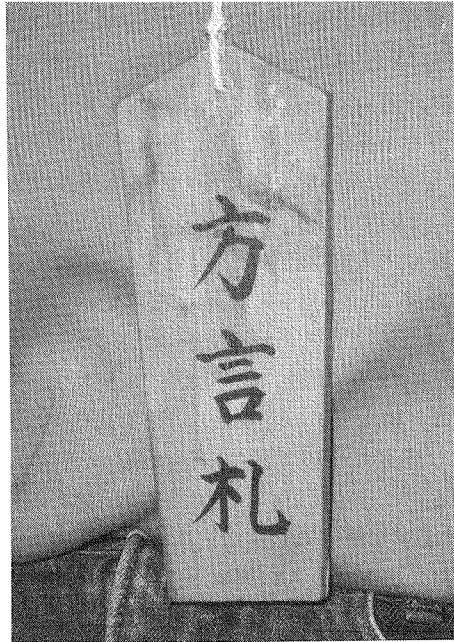 方言札